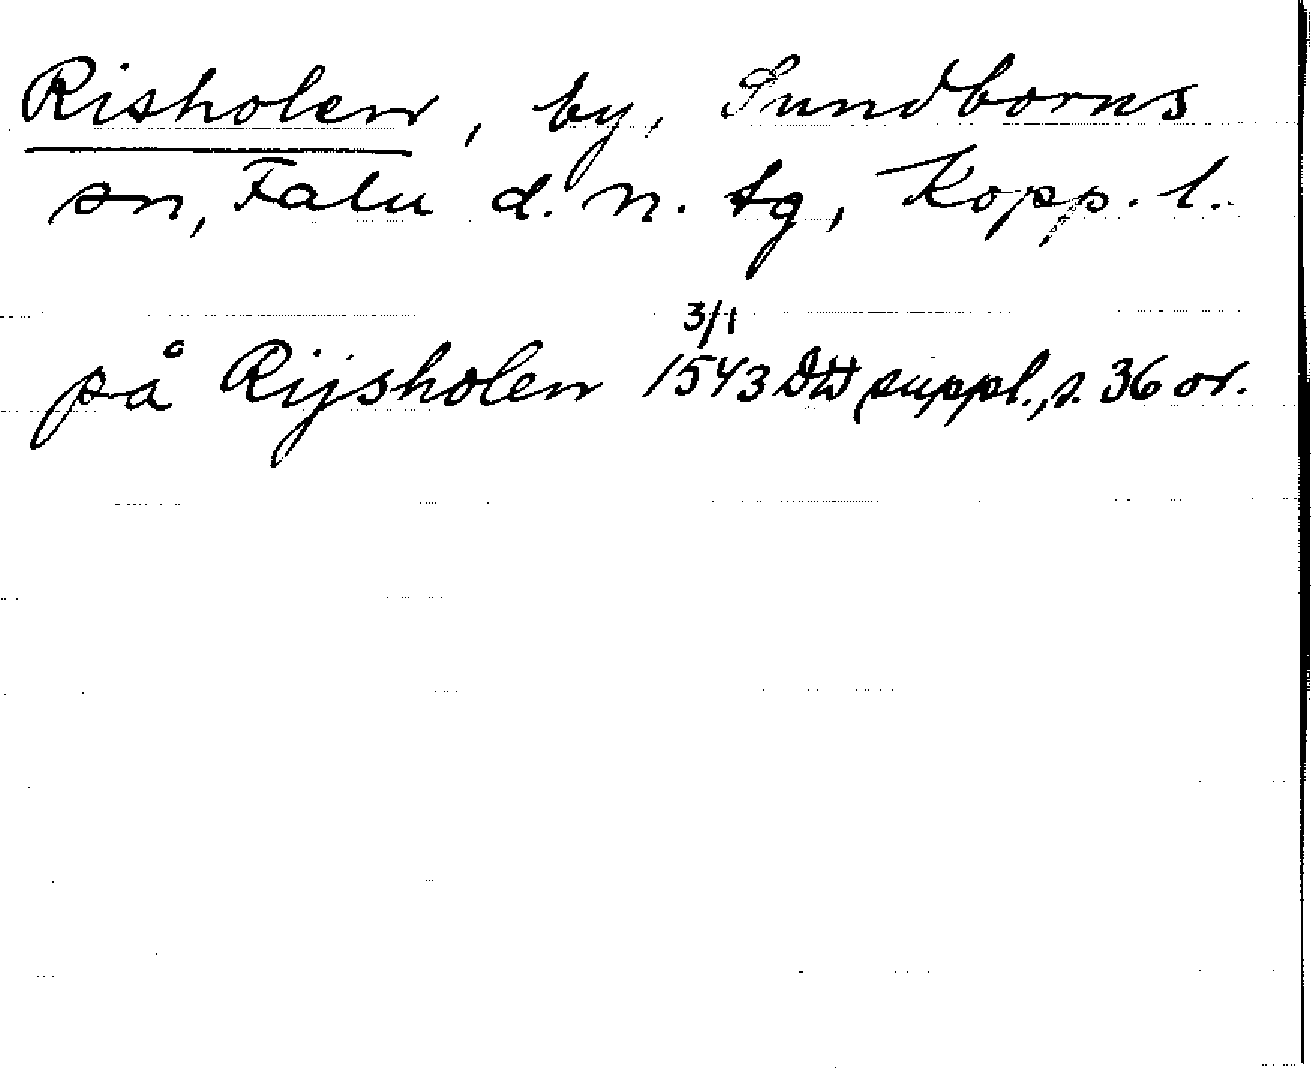 Risholen, by, Sundborns
sn, Falu d. n. tg, Kopp. l.
3/1
på Rijsholen 1543 DD suppl., s. 36 or.